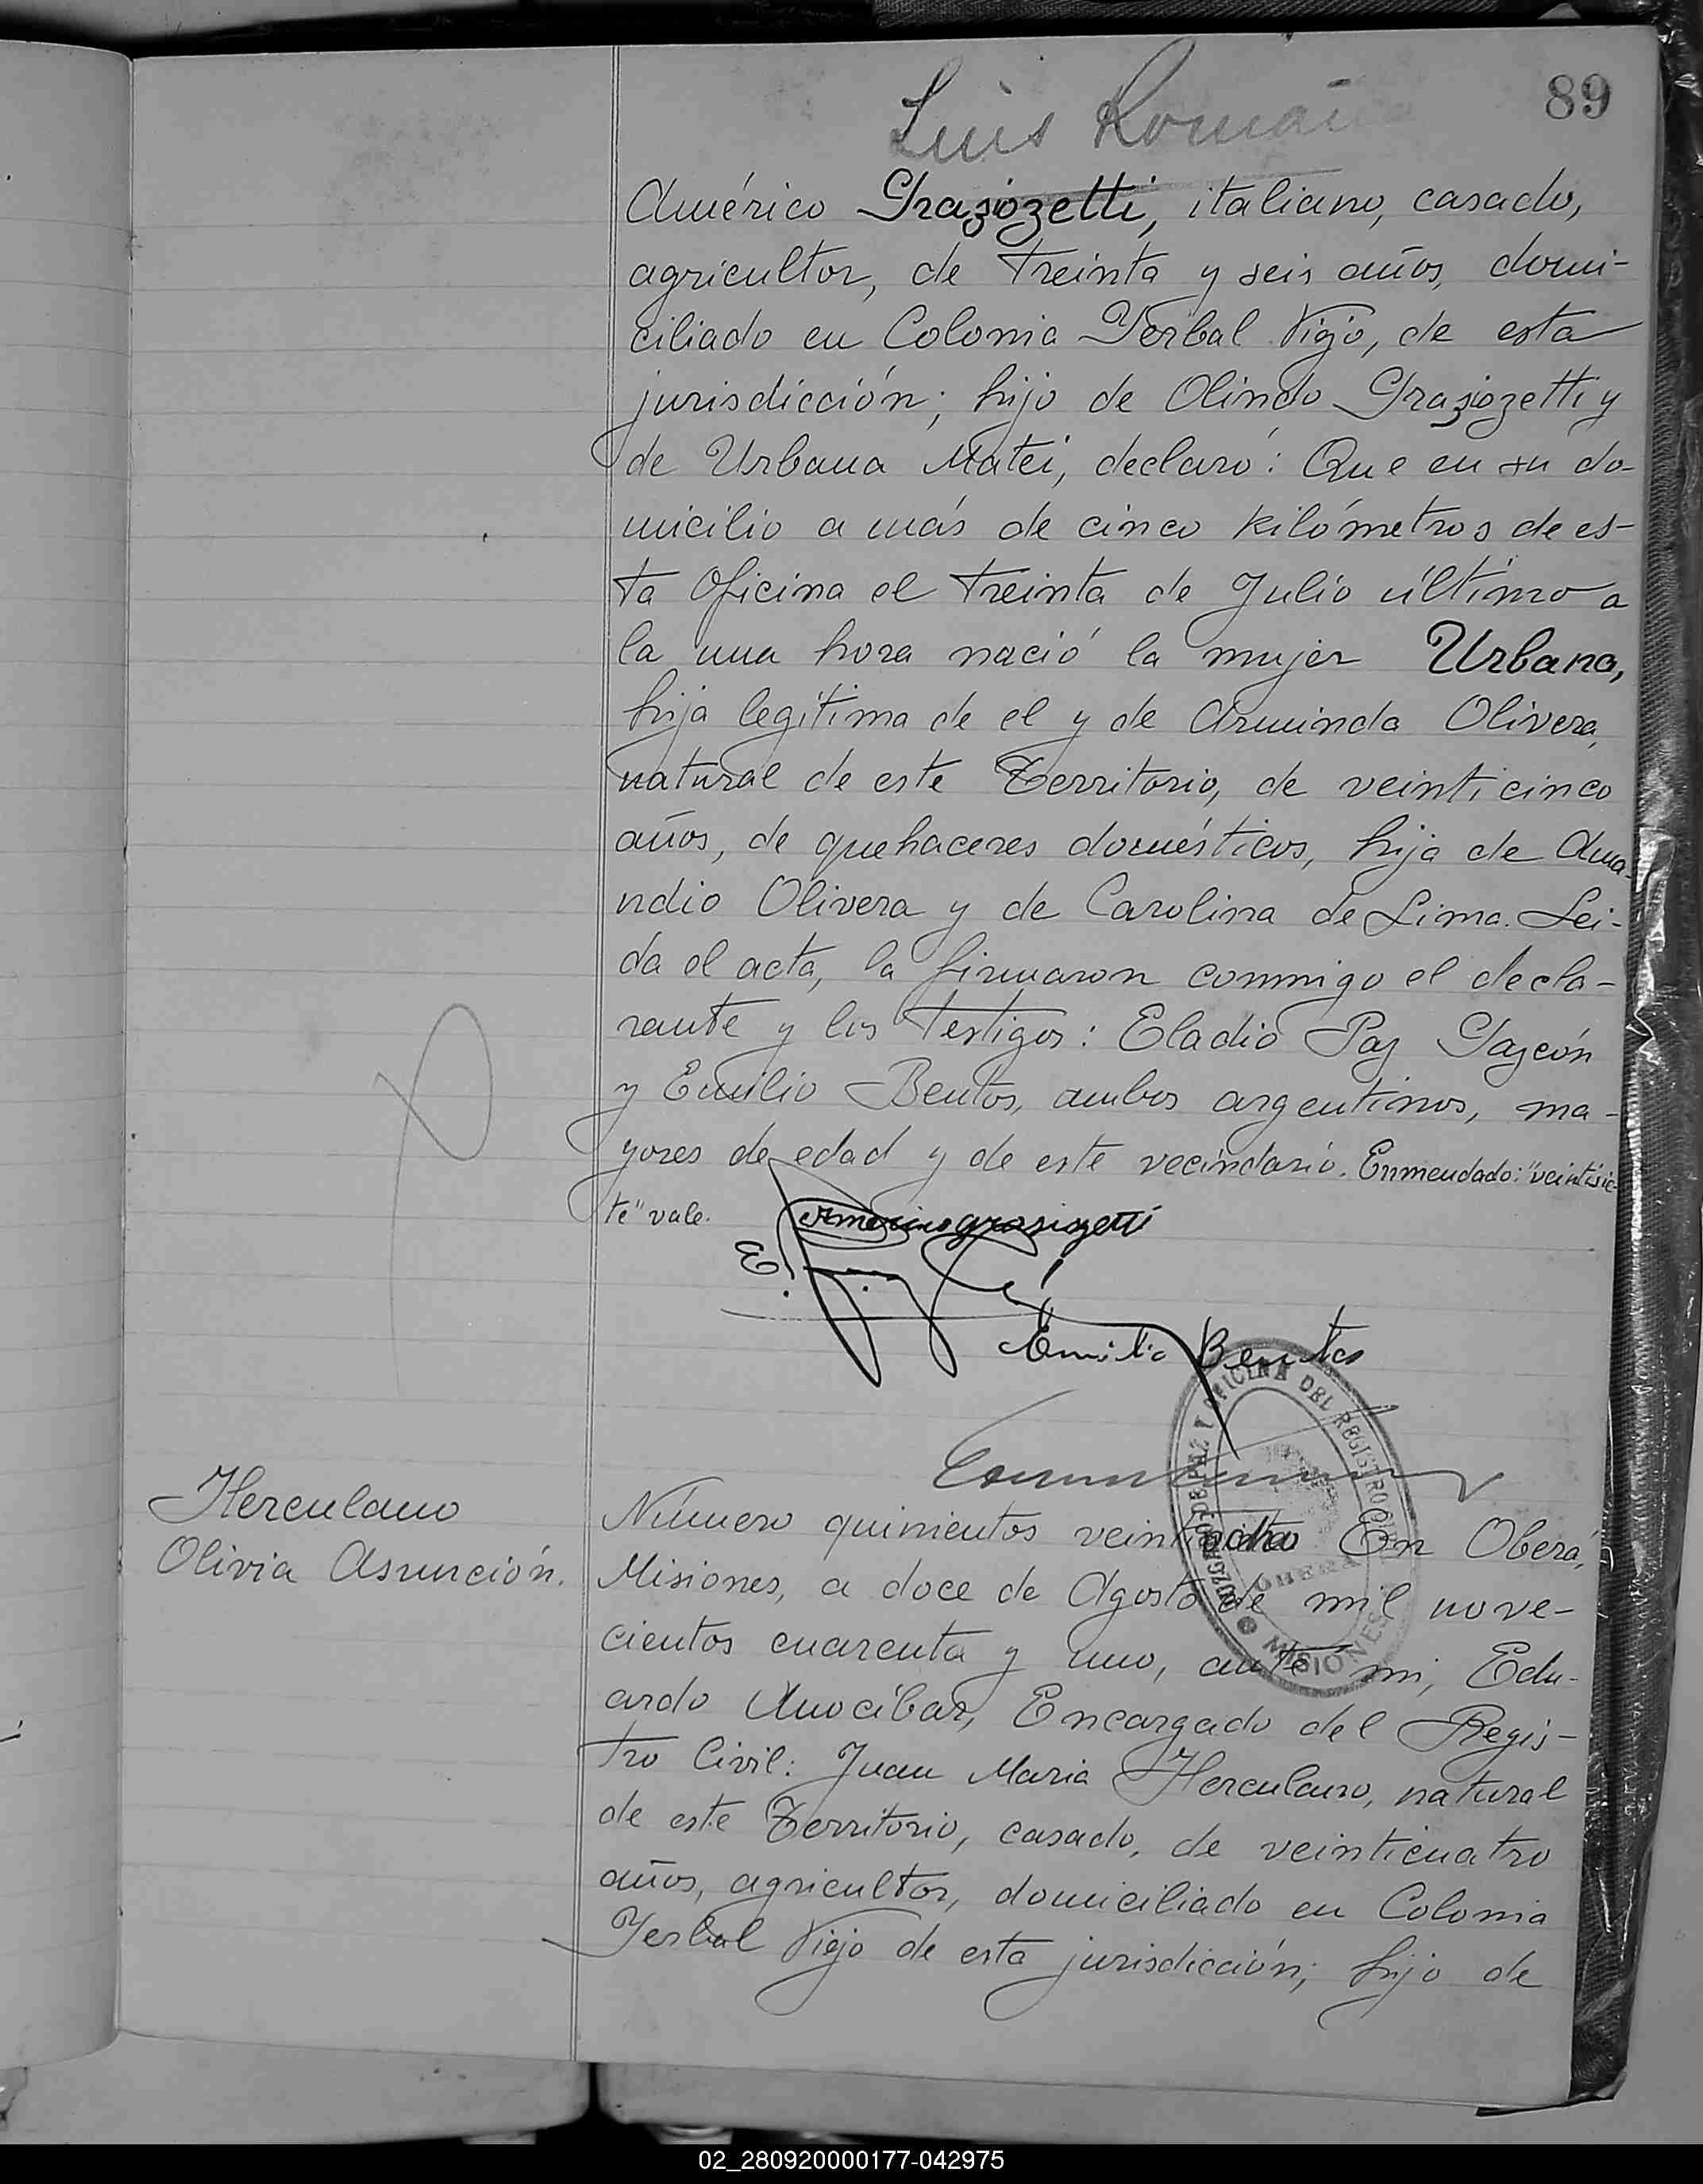 89
Luis Román
Américo Graziozetti, italiano, casado,
agricultor, de treinta y seis años, domi-
ciliado en Colonia Yerbal Viejo, de esta
jurisdicción; hijo de Olindo Graziozetti y
de Urbana Matei, declaró: Que en su do-
micilio a más de cinco kilómetros de es-
ta Oficina el treinta de Julio último a
la una hora nació la mujer Urbana,
hija legítima de el y de Arminda Olivera,
natural de este Territorio, de veinticinco
años, de quehaceres domésticos, hija de Ama-
ndio Olivera y de Carolina de Lima. Lei-
da el acta, la firmaron conmigo el decla-
rante y los testigos: Eladio Paz Gazcón
y Emilio Bentos, ambos argentinos, ma-
yores de edad y de este vecindario. Enmendado: "veintisie-
te" vale.
Americo Grasiozetti
Emilio Bentos
JUZGADO DE PAZ Y OFICINA DEL REGISTRO CIVIL
OBERA
MISIONES
Herculano
Olivia Asunción.
Número quinientos veintiocho En Oberá,
Misiones, a doce de Agosto de mil nove-
cientos cuarenta y uno, ante mi, Edu-
ardo Anocíbar, Encargado del Regis-
tro Civil: Juan Maria Herculano, natural
de este Territorio, casado, de veinticuatro
años, agricultor, domiciliado en Colonia
Yerbal Viejo de esta jurisdicción; hijo de
02_280920000177-042975